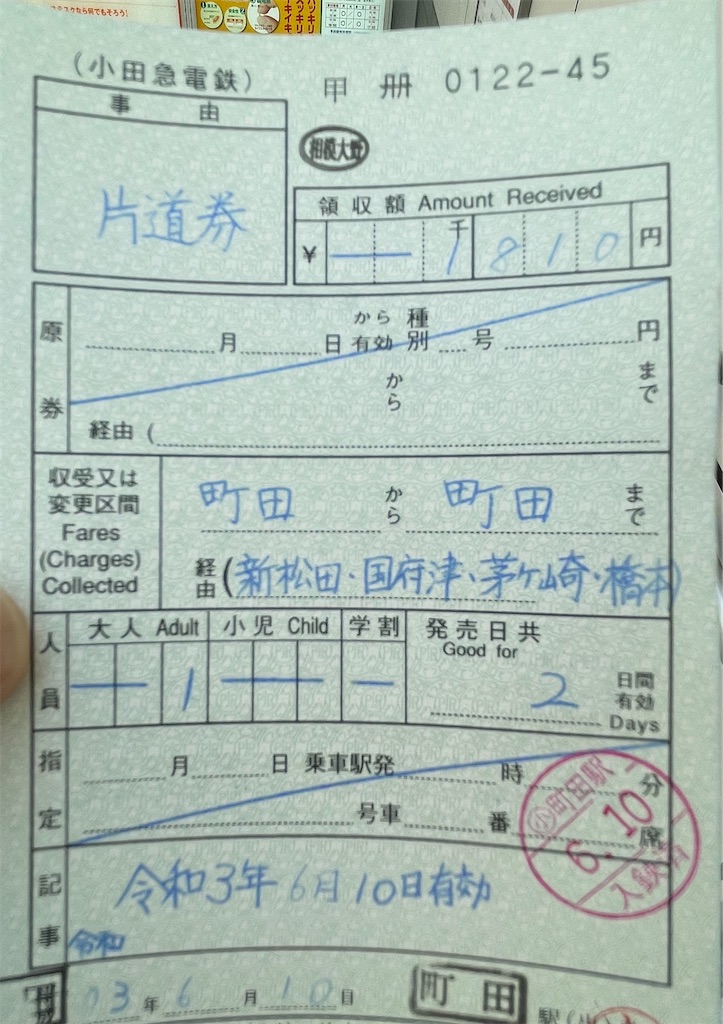 (小田急電鉄)
甲 册 0122-45
事由
相模大野
片道券
領収額 Amount Received
¥ 千 1 8 1 0 円
原券
月 日 から有効 種別 号 円
から まで
経由 (
収受又は
変更区間
Fares
(Charges)
Collected
町田 から 町田 まで
経由 (新松田・国府津、茅ケ崎・橋本)
人員
大人 Adult 小児 Child 学割
1
発売日共
Good for
2 日間有効
Days
指定
月 日 乗車駅発 時 分
号車 番 席
小 町田駅
6.10
入鋏済
記事
令和3年6月10日有効
令和
03年6月10日 町田 駅